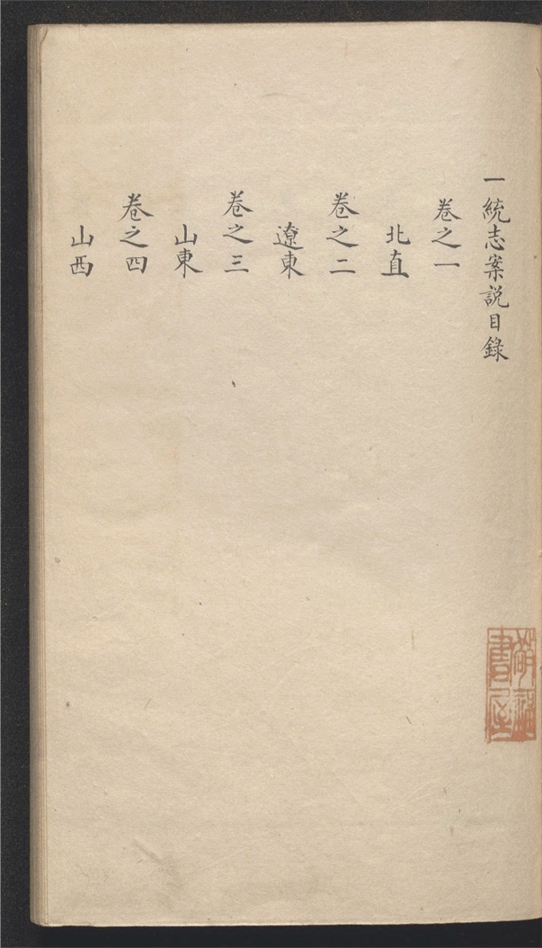 一統志案説目錄
卷之一
北直
卷之二
遼東
卷之三
山東
卷之四
山西